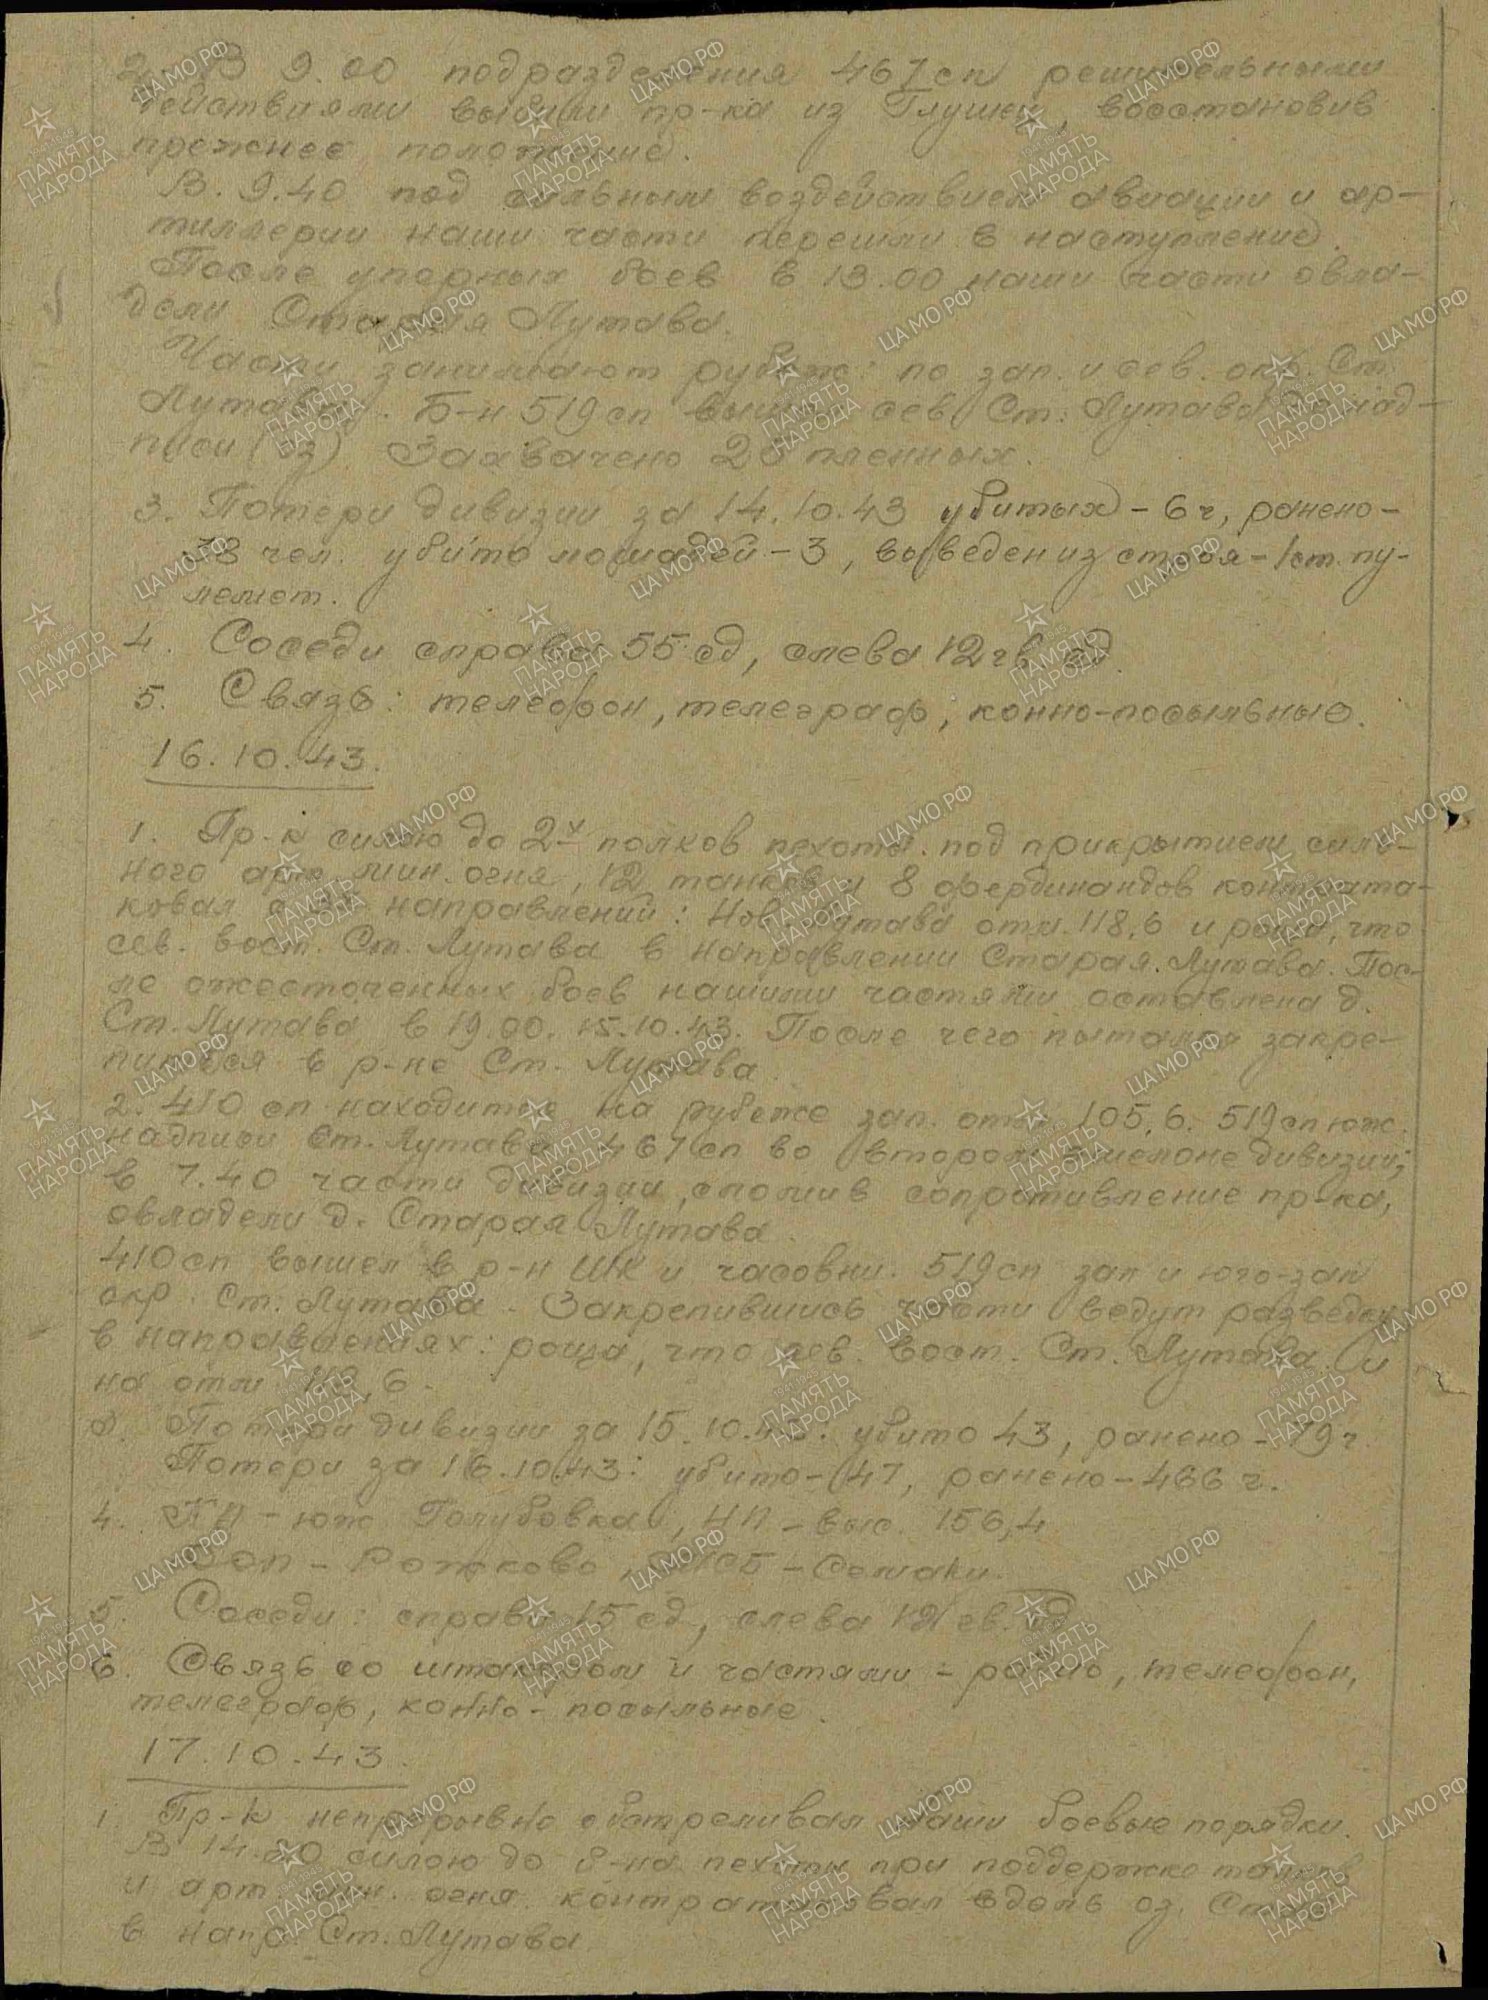 2. В 9.00 подразделения 467 сп решительными
действиями выбили пр-ка из Глушец, восстановив
прежнее положение.
В. 9.40 под сильным воздействием авиации и ар-
тиллерии наши части перешли в наступление.
После упорных боев в 13.00 наши части овла-
дели Старая Лутава
Части занимают рубеж: по зап. и сев. окр. Ст.
Лутава. Б-н 519 сп вышел сев. Ст. Лутава до над-
писи (оз) Захвачено 20 пленных.
3. Потери дивизии за 14.10.43 убитых - 6 ч, ранено -
38 чел. убито лошадей - 3, выведен из строя - 1 ст. пу-
лемет.
4. Соседи справа 55 сд, слева 12 гв сд.
5. Связь: телефон, телеграф, конно-посыльные.
16.10.43.
1. Пр-к силою до 2х полков пехоты под прикрытием силь-
ного арт. мин. огня, 12 танков и 8 фердинандов контрата-
ковал с направлений: Нов. Лутава отм. 118,6 и роща, что
сев. вост. Ст. Лутава в направлении Старая Лутава. Пос-
ле ожесточенных боев нашими частями оставлена д.
Ст. Лутава в 19.00. 15.10.43. После чего пытался закре-
питься в р-не Ст. Лутава.
2. 410 сп находится на рубеже зап. отм. 105,6. 519 сп юж.
надписи Ст. Лутава 467 сп во втором эшелоне дивизии;
в 7.40 части дивизии, сломив сопротивление пр-ка,
овладели д. Старая Лутава.
410 сп вышел в р-н шк и часовни. 519 сп зап и юго-зап
окр. Ст. Лутава. Закрепившись части ведут разведку
в направлениях: роща, что сев. вост. Ст. Лутава и
на отм 118,6.
3. Потери дивизии за 15.10.43. убито 43, ранено - 79 ч
Потери за 16.10.43: убито - 47, ранено - 466 ч.
4. КП - юж Голубовка, НП - выс 156,4
- Рожково, - Семаки.
5. Соседи: справа 15 сд, слева 12 гв. сд
6. Связь со штакором и частями - радио, телефон,
телеграф, конно - посыльные.
17.10.43.
1. Пр-к непрерывно обстреливал наши боевые порядки.
В 14.20 силою до б-на пехоты при поддержке танков
и арт. мин. огня контратаковал вдоль оз.
в напр. Ст. Лутава
ЦА МО РФ
1941-1945
ПАМЯТЬ
НАРОДА